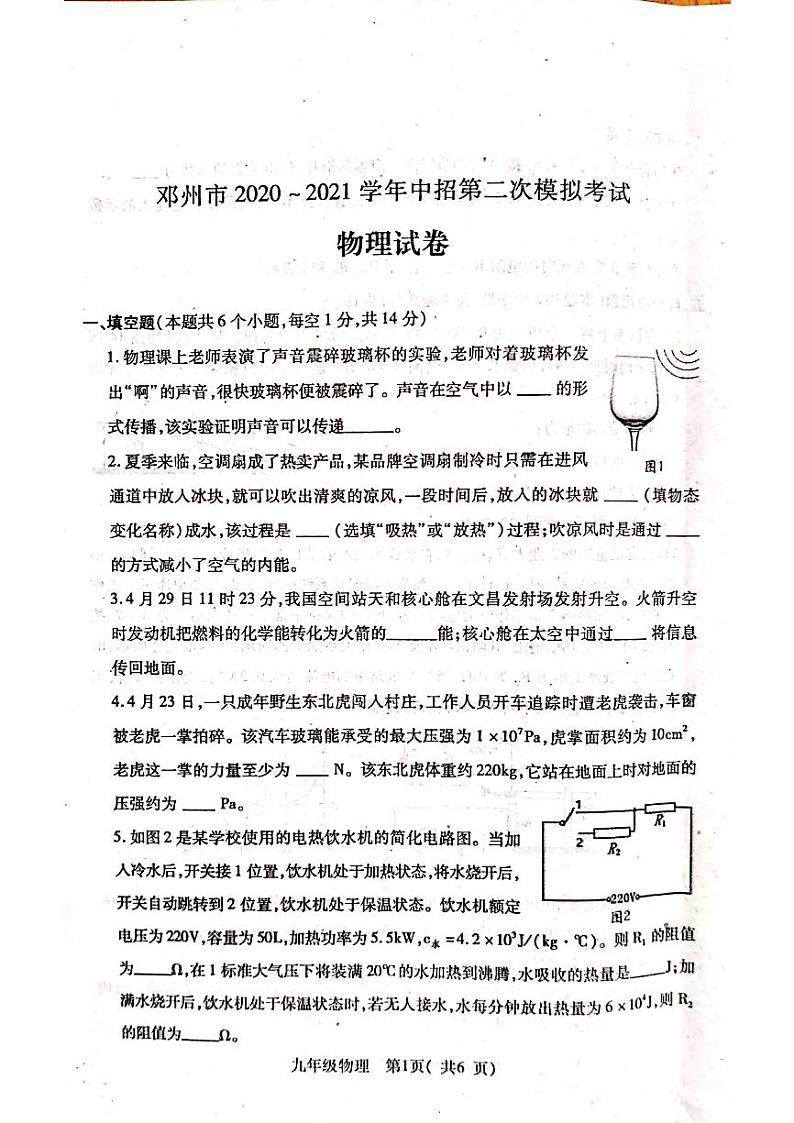 邓州市2020~2021学年中招第二次模拟考试
物理试卷
一、填空题(本题共6个小题,每空1分,共14分)
1.物理课上老师表演了声音震碎玻璃杯的实验,老师对着玻璃杯发
出“啊”的声音,很快玻璃杯便被震碎了。声音在空气中以____的形
式传播,该实验证明声音可以传递______。
图1
2.夏季来临,空调扇成了热卖产品,某品牌空调扇制冷时只需在进风
通道中放入冰块,就可以吹出清爽的凉风,一段时间后,放入的冰块就____(填物态
变化名称)成水,该过程是____(选填“吸热”或“放热”)过程;吹凉风时是通过____
的方式减小了空气的内能。
3.4月29日11时23分,我国空间站天和核心舱在文昌发射场发射升空。火箭升空
时发动机把燃料的化学能转化为火箭的______能;核心舱在太空中通过____将信息
传回地面。
4.4月23日,一只成年野生东北虎闯入村庄,工作人员开车追踪时遭老虎袭击,车窗
被老虎一掌拍碎。该汽车玻璃能承受的最大压强为1×10⁷Pa,虎掌面积约为10cm²,
老虎这一掌的力量至少为____N。该东北虎体重约220kg,它站在地面上时对地面的
压强约为____Pa。
5.如图2是某学校使用的电热饮水机的简化电路图。当加
入冷水后,开关接1位置,饮水机处于加热状态,将水烧开后,
开关自动跳转到2位置,饮水机处于保温状态。饮水机额定
1
2
R₁
R₂
220V
图2
电压为220V,容量为50L,加热功率为5.5kW,c水=4.2×10³J/(kg·℃)。则R₁的阻值
为_____Ω,在1标准大气压下将装满20℃的水加热到沸腾,水吸收的热量是_____J;加
满水烧开后,饮水机处于保温状态时,若无人接水,水每分钟放出热量为6×10⁴J,则R₂
的阻值为_____Ω。
九年级物理 第1页(共6页)